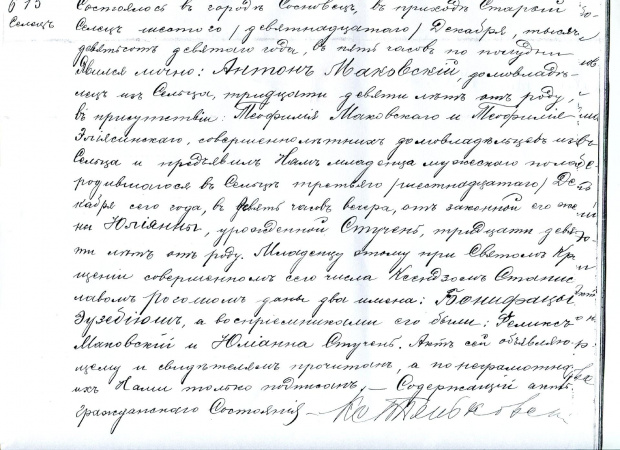 613 Состоялось въ городѣ Сосновецъ, въ приходѣ Старый
Селецъ Селецъ шестого / девятнадцатаго / Декабря, тысяч
девятьсотъ девятаго года, въ пять часовъ по полудни
Явился лично: Антонъ Маковскій, домовладѣ-
лецъ изъ Сельца, тридцати девяти лѣтъ отъ роду,
въ присутствіи: Теофилія Маковскаго и Теофилія
Эліясинскаго, совершеннолѣтнихъ домовладѣльцевъ изъ
Сельца и предъявилъ Намъ младенца мужескаго пола
родившагося въ Сельцѣ третьяго / шестнадцатаго / Де-
кабря сего года, въ девять часовъ вечера, отъ законной его же
ны Юліянны, урожденной Ступень, тридцати девя-
ти лѣтъ отъ роду. Младенцу этому при Святомъ Кре
щеніи совершенномъ сего числа Ксендзомъ Станис
лавомъ Росошомъ даны два имена: Бонифацы
Эузебіюшъ, а воспріемниками его были: Феликсъ
Маковскій и Юліанна Ступень. Актъ сей объявляю-
щему и свидѣтелямъ прочитанъ, а по неграмотно
ихъ Нами только подписанъ. — Содержащій акты
гражданскаго Состоянія —